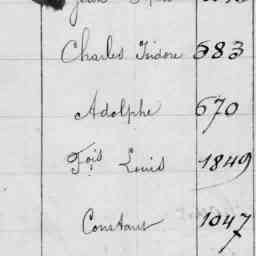 Charles Isidore 683
Adolphe 670
Fois Louis 1849
Constant 1047